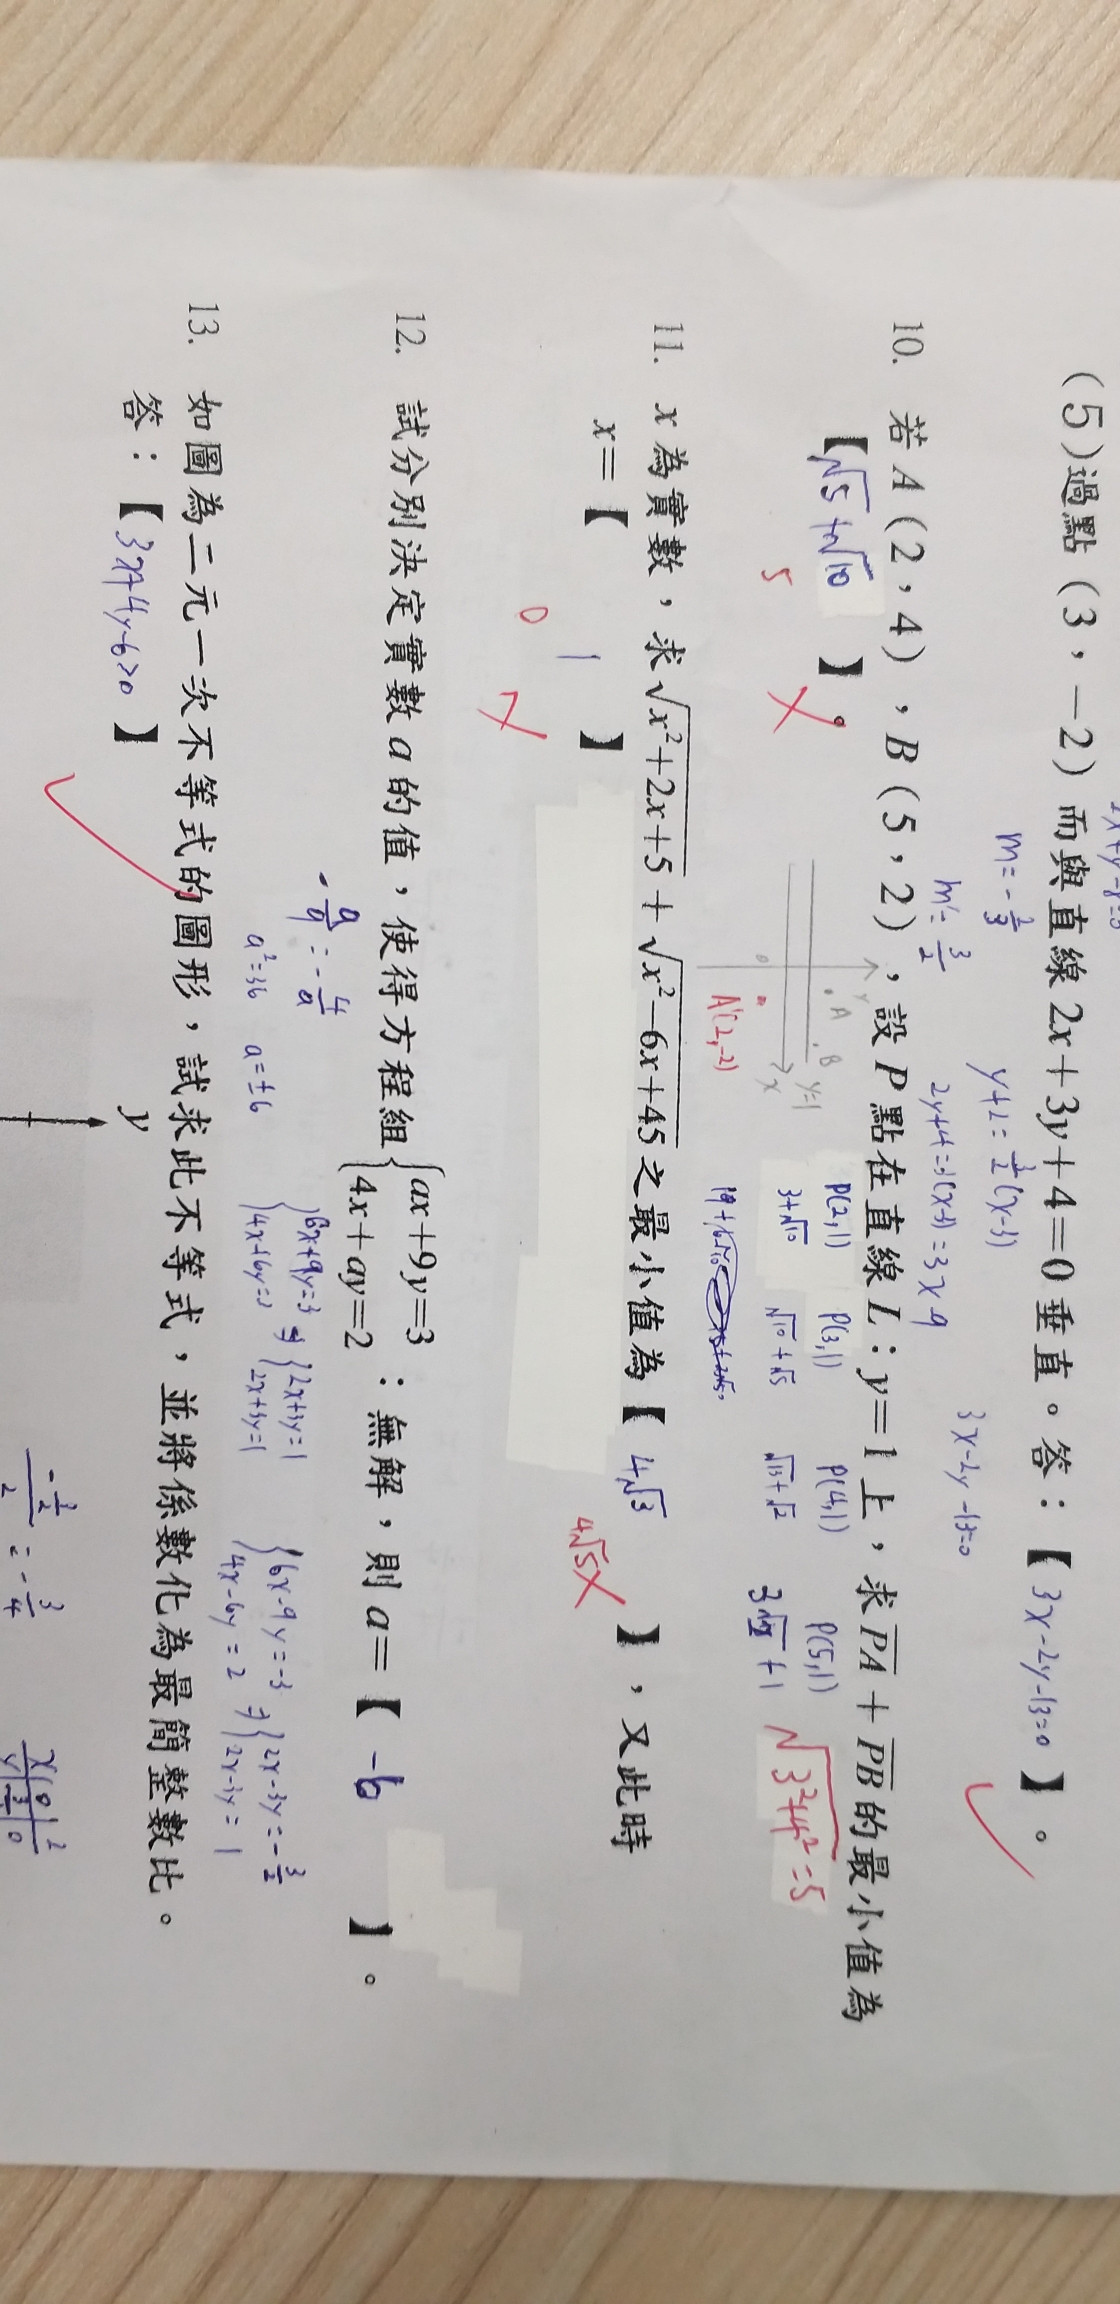 (5)過點(3,-2)而與直線2x+3y+4=0垂直。答:【3x-2y-13=0】。
m=-2/3
y+2=3/2(x-3)
3x-2y-13=0
m'=3/2
2y+4=3(x-3)=3x-9
10. 若A(2,4),B(5,2),設P點在直線L:y=1上,求PA+PB的最小值為
【√5+√10】。
5
y
A
B
y=1
x
0
A'(2,-2)
P(2,1) P(3,1) P(4,1) P(5,1)
3+√10 √10+√5 √13+√2 +1
√3²+4²=5
11. x為實數,求√x²+2x+5+√x²-6x+45之最小值為【4√3】,又此時
4√5
x=【1】
0
12. 試分別決定實數a的值,使得方程組{ax+9y=3
4x+ay=2:無解,則a=【-6】。
-a/9=-4/a
a²=36 a=±6
{6x+9y=3 ⇒ {2x+3y=1
{4x+6y=2 2x+3y=1
{6x-9y=-3 ⇒ {2x-3y=-3/2
4x-6y=2 2x-3y=1
13. 如圖為二元一次不等式的圖形,試求此不等式,並將係數化為最簡整數比。
答:【3x+4y-6>0】
y
-3/2/2=-3/4
x 0 2
y 3/2 0